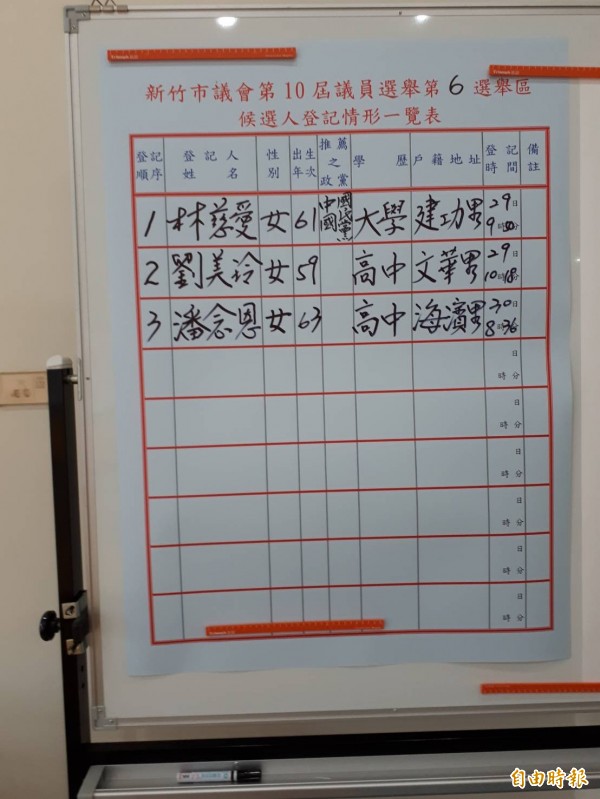 新竹市議會第10屆議員選舉第6選舉區
候選人登記情形一覽表
登記順序 登記人姓名 性別 出生年次 推薦之政黨 學歷 戶籍地址 登記時間 備註
1 林慈愛 女 61 中國國民黨 大學 建功里 29日9時50分
2 劉美玲 女 59 高中 文華里 29日10時18分
3 潘念恩 女 63 高中 海濱里 30日8時36分
日時分
日時分
日時分
日時分
日時分
日時分
自由時報